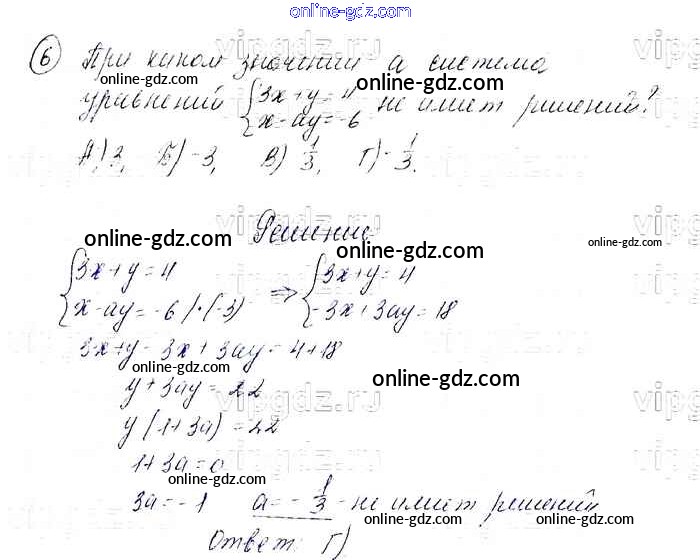 online-gdz.com
6) При каком значении а система
online-gdz.com online-gdz.com
уравнений { 3x+y=4 x-ay=-6 не имеет решений?
А) 3, Б) -3, В) 1/3, Г) -1/3.
Решение
online-gdz.com online-gdz.com online-gdz.com
{ 3x+y=4 x-ay=-6 /·(-3) => { 3x+y=4 -3x+3ay=18
3x+y-3x+3ay=4+18
online-gdz.com online-gdz.com
y+3ay=22
y(1+3a)=22
1+3a=0
online-gdz.com
3a=-1 a=-1/3 - не имеет решений
online-gdz.com online-gdz.com
Ответ: Г)
vipgdz.ru